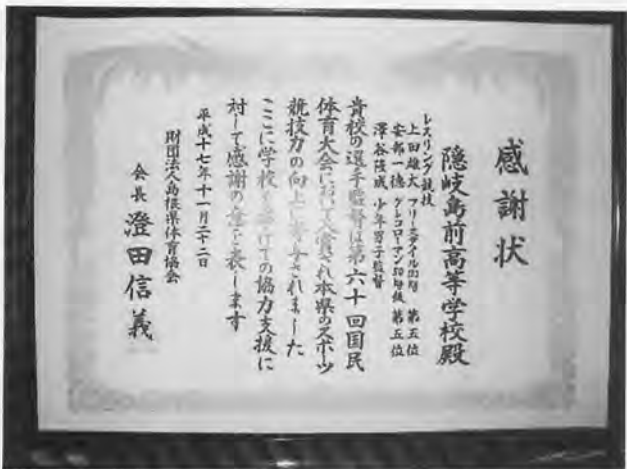 感謝状
隠岐島前高等学校殿
レスリング競技
上田雄大 フリースタイル 級 第五位
安部一徳 グレコローマン50㎏級 第五位
澤谷隆成 少年男子監督
貴校の選手監督は第六十回国民
体育大会において入賞され本県のスポーツ
競技力の向上に寄与されました
ここに学校を挙げての協力支援に
対して感謝の意を表します
平成十七年十一月二十二日
財団法人島根県体育協会
会長 澄田信義